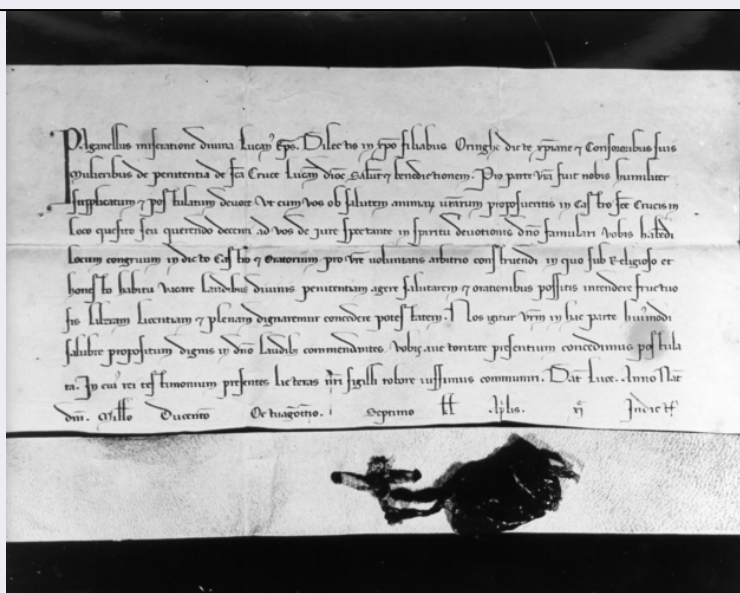 P.lganellus miseratione divina Lucan̄ Ep̄s. Dilectis in xp̄o filiabus Oringhe dicte xp̄iane ⁊ Consororibus suis
Mulieribus de penitentia de sc̄a Cruce Lucan̄ dioc̄ salutē ⁊ benedictionem. Pro parte vr̄a fuit nobis humiliter
supplicatum ⁊ postulatum devote Ut cum vos ob salutem animaꝝ vestrarum proposueritis in Castro sc̄e Crucis in
loco quesito seu querendo decenti ad vos de jure spectante in spiritu devotionis dn̄o famulari vobis habēdi
locum congruum in dicto Castro ⁊ Oratorium pro vr̄e voluntatis arbitrio construendi in quo sub Religioso et
honesto habitu vacare Laudibus divinis penitentiam agere salutarem ⁊ orationibus possitis intendere fructuo
sis Liberam Licentiam ⁊ plenam dignaremur concedere potestatem. Nos igitur vr̄m in hac parte hui'modi
salubre propositum dignis in dn̄o laudib; commendantes. vobis auctoritate presentium concedimus postula
ta. In cui' rei testimonium presentes licteras nr̄i sigilli robore iussimus communiri. Dat̄ Luce. Anno Nat̄
dn̄i. Mill̄o Ducen̄to Octuagesīmo. Septimo kl̄ Ap̄lis. Indict̄